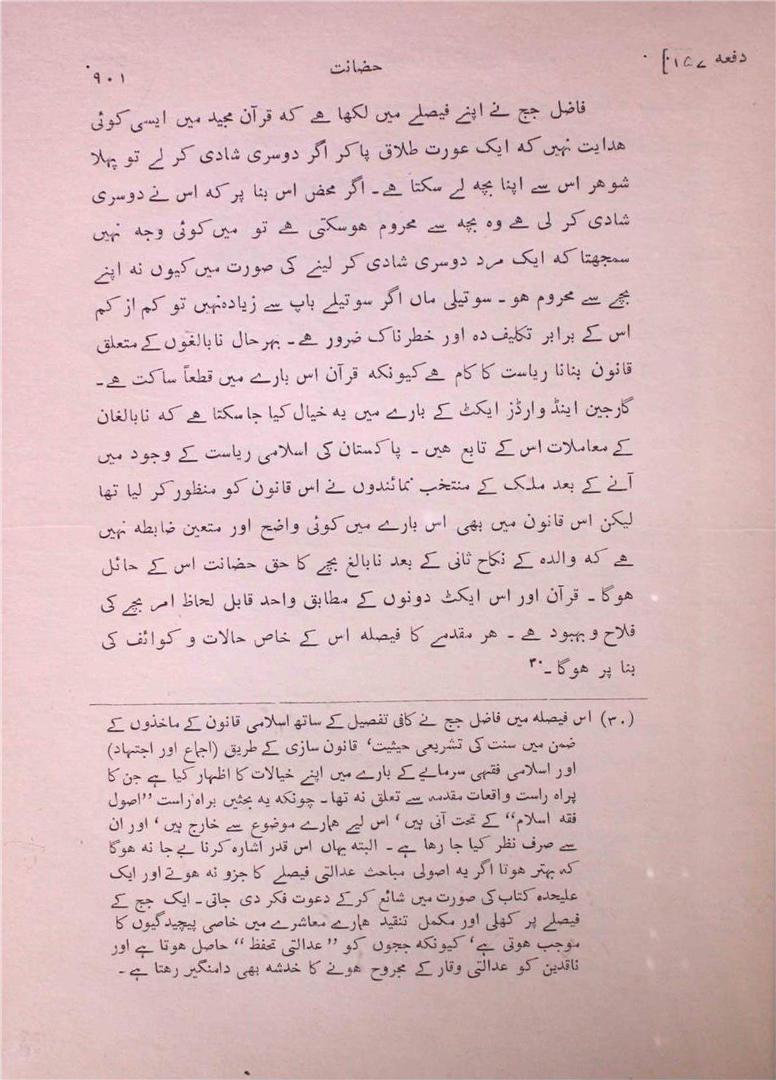 دفعہ ۱۵۷]
حضانت
۹۰۱
فاضل جج نے اپنے فیصلے میں لکھا ہے کہ قرآن مجید میں ایسی کوئی
ھدایت نہیں کہ ایک عورت طلاق پا کر اگر دوسری شادی کر لے تو پہلا
شوھر اس سے اپنا بچہ لے سکتا ہے۔ اگر محض اس بنا پر کہ اس نے دوسری
شادی کر لی ہے وہ بچہ سے محروم ھوسکتی ہے تو میں کوئی وجہ نہیں
سمجھتا کہ ایک مرد دوسری شادی کر لینے کی صورت میں کیوں نہ اپنے
بچے سے محروم ھو۔ سوتیلی ماں اگر سوتیلے باپ سے زیادہ نہیں تو کم از کم
اس کے برابر تکلیف دہ اور خطرناک ضرور ہے۔ بہر حال نابالغوں کے متعلق
قانون بنانا ریاست کا کام ہے کیونکہ قرآن اس بارے میں قطعاً ساکت ہے۔
گارجین اینڈ وارڈز ایکٹ کے بارے میں یہ خیال کیا جا سکتا ہے کہ نابالغان
کے معاملات اس کے تابع ھیں۔ پاکستان کی اسلامی ریاست کے وجود میں
آنے کے بعد ملک کے منتخب نمائندوں نے اس قانون کو منظور کر لیا تھا
لیکن اس قانون میں بھی اس بارے میں کوئی واضح اور متعین ضابطہ نہیں
ہے کہ والدہ کے نکاح ثانی کے بعد نابالغ بچے کا حق حضانت اس کے حائل
ھوگا۔ قرآن اور اس ایکٹ دونوں کے مطابق واحد قابل لحاظ امر بچے کی
فلاح و بہبود ہے۔ ھر مقدمے کا فیصلہ اس کے خاص حالات و کوائف کی
بنا پر ھوگا۔۳۰
(۳۰) اس فیصلہ میں فاضل جج نے کافی تفصیل کے ساتھ اسلامی قانون کے ماخذوں کے
ضمن میں سنت کی تشریعی حیثیت، قانون سازی کے طریق (اجماع اور اجتہاد)
اور اسلامی فقہی سرمایے کے بارے میں اپنے خیالات کا اظہار کیا ہے جن کا
براہ راست واقعات مقدمہ سے تعلق نہ تھا۔ چونکہ یہ بحثیں براہ راست ”اصول
فقہ اسلام“ کے تحت آتی ھیں، اس لیے ھمارے موضوع سے خارج ھیں، اور ان
سے صرف نظر کیا جا رھا ہے۔ البتہ یہاں اس قدر اشارہ کرنا بے جا نہ ھوگا
کہ بہتر ھوتا اگر یہ اصولی مباحث عدالتی فیصلے کا جزو نہ ھوتے اور ایک
علیحدہ کتاب کی صورت میں شائع کر کے دعوت فکر دی جاتی۔ ایک جج کے
فیصلے پر کھلی اور مکمل تنقید ھمارے معاشرے میں خاصی پیچیدگیوں کا
موجب ھوتی ہے، کیونکہ ججوں کو ”عدالتی تحفظ“ حاصل ھوتا ہے اور
ناقدین کو عدالتی وقار کے مجروح ھونے کا خدشہ بھی دامنگیر رھتا ہے۔